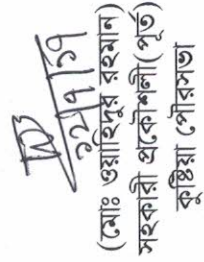 ১২/৭/১৭
(মোঃ ওয়াহিদুর রহমান)
সহকারী প্রকৌশলী(পূর্ত)
কুষ্টিয়া পৌরসভা